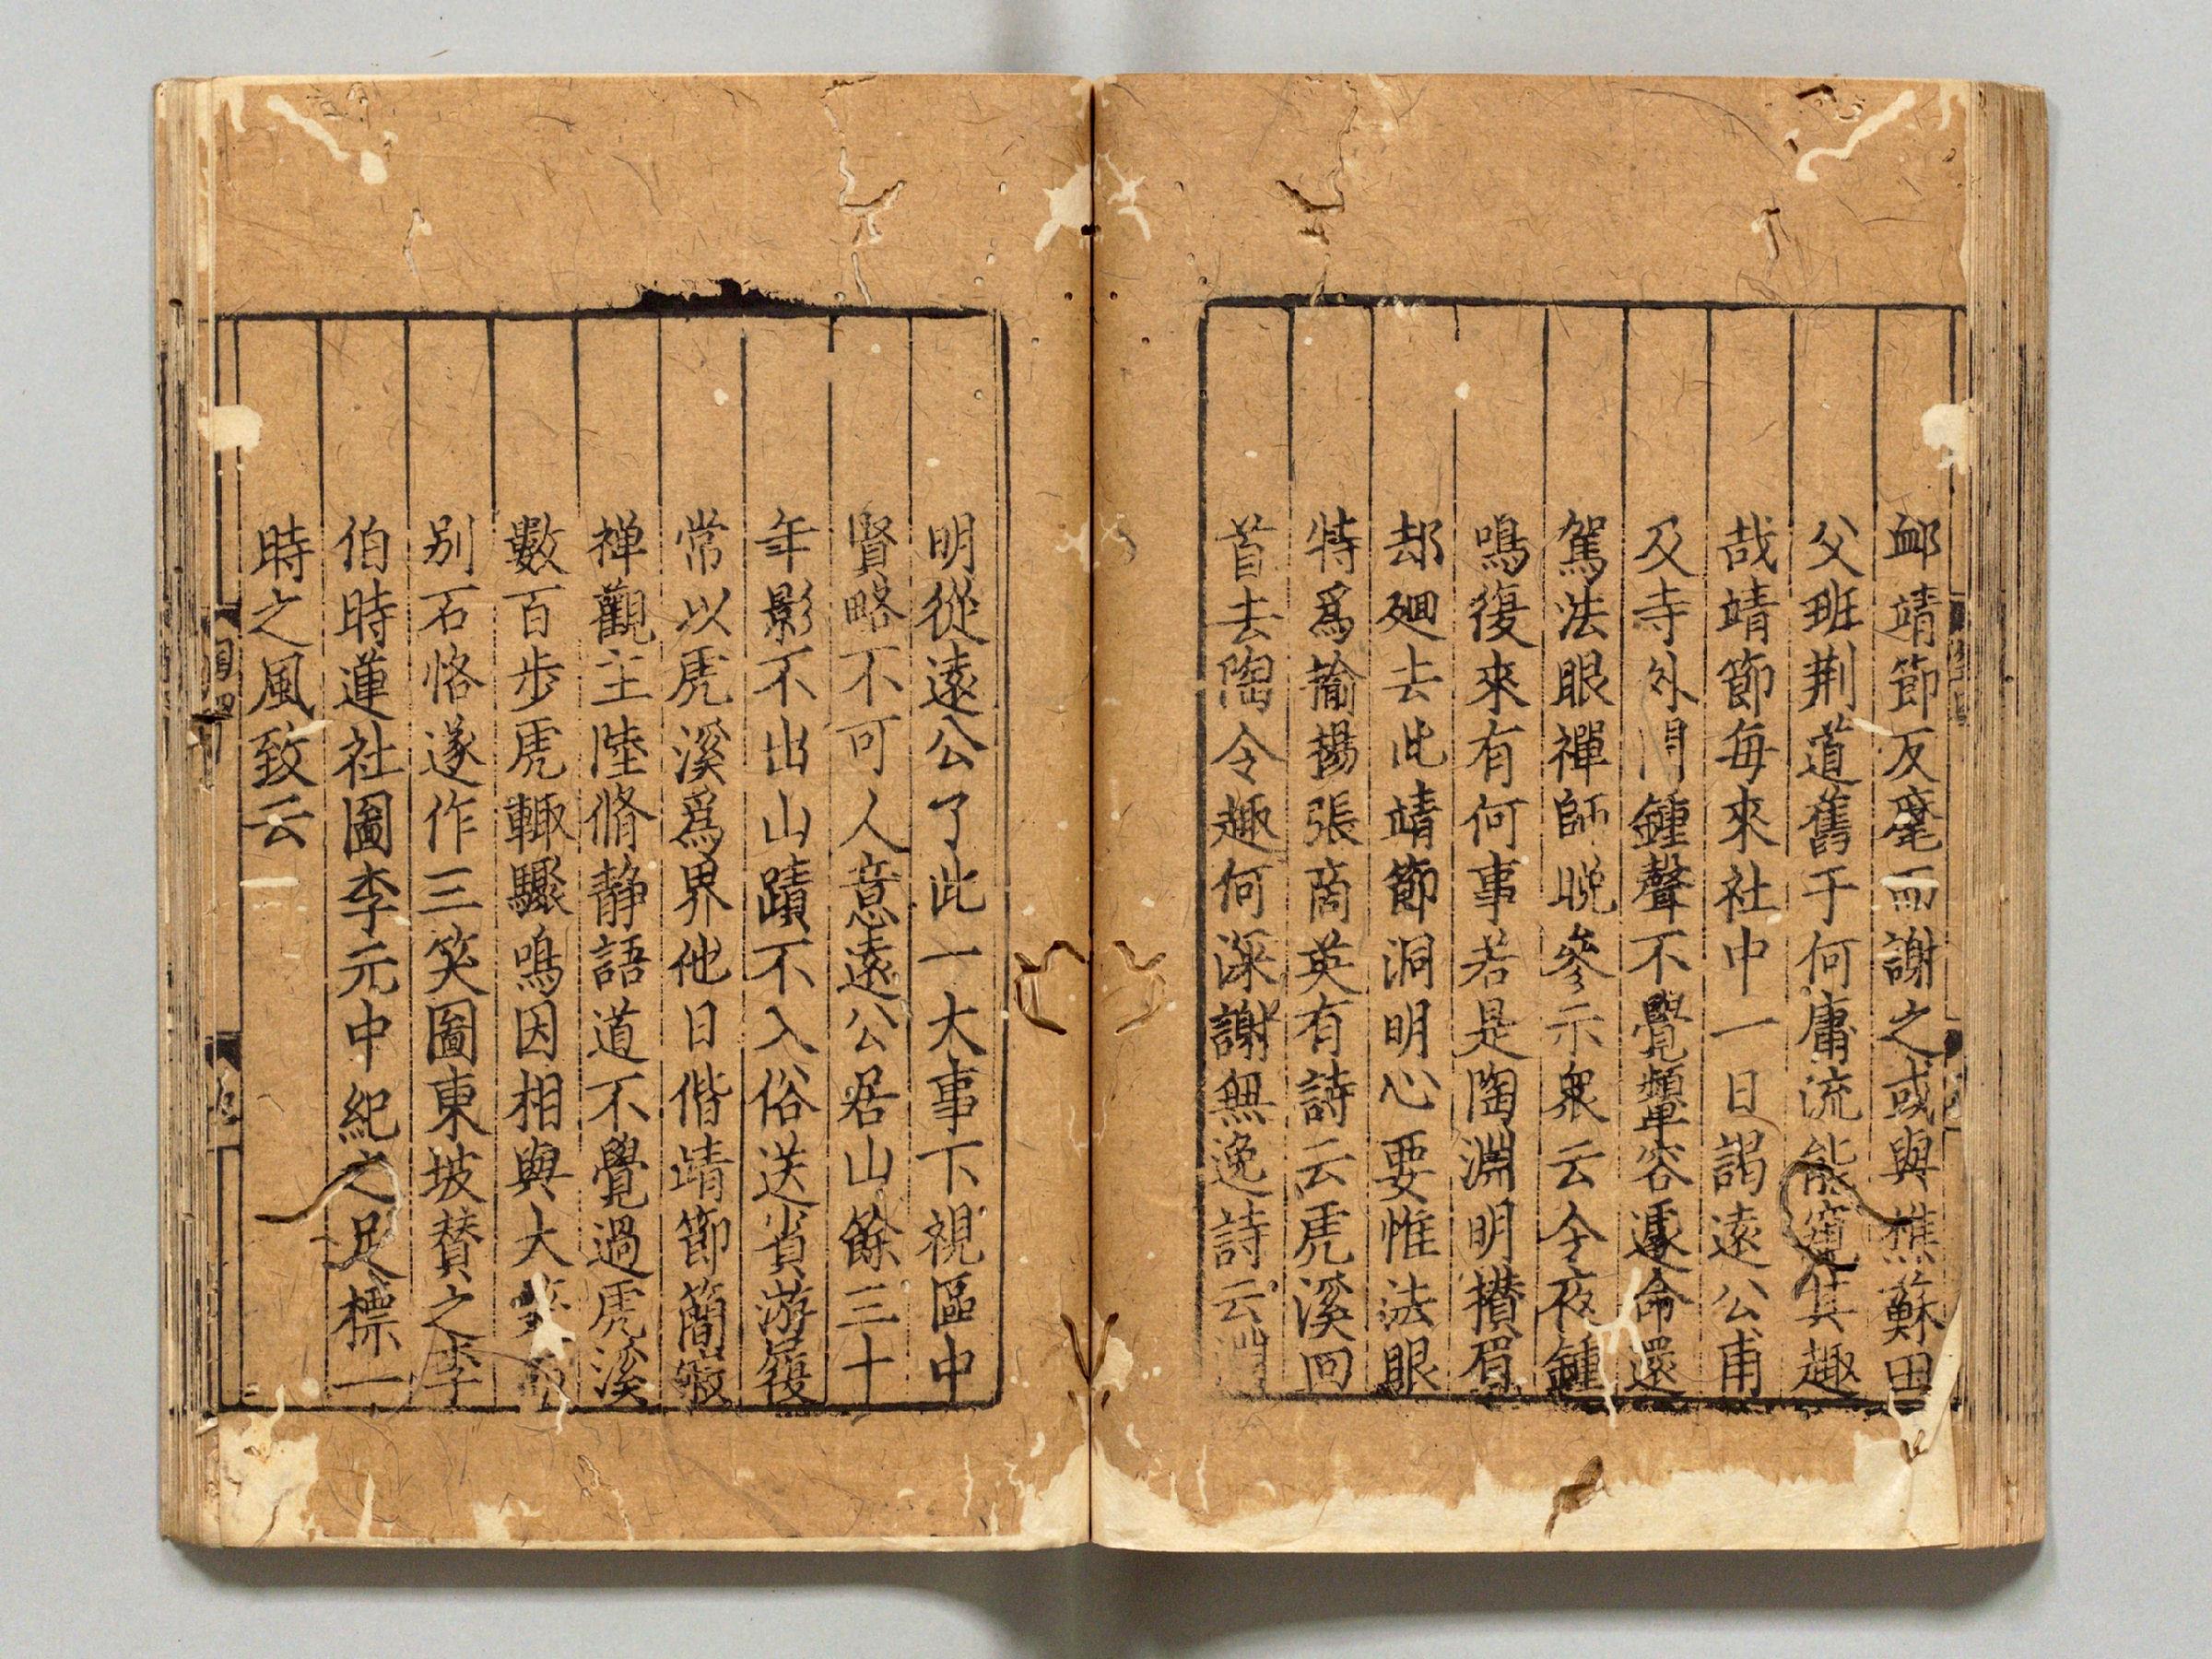 卹靖節反麾而謝之或與樵蘇田
父班荆道舊于何庸流能窺其趣
哉靖節每來社中一日謁遠公甫
及寺外聞鍾聲不覺顰容遽命還
駕法眼禪師晚參示衆云今夜鍾
鳴復來有何事若是陶淵明攅眉
却廻去此靖節洞明心要惟法眼
特爲揄揚張商英有詩云虎溪回
首去陶令趣何深謝無逸詩云淵
明從遠公了此一大事下視區中
賢略不可人意遠公居山餘三十
年影不出山蹟不入俗送賓游履
常以虎溪爲界他日偕靖節簡寂
禅觀主陸脩静語道不覺過虎溪
數百步虎輒驟鳴因相與大笑而
别石恪遂作三笑圖東坡賛之李
伯時蓮社圖李元中紀之足標一
時之風致云